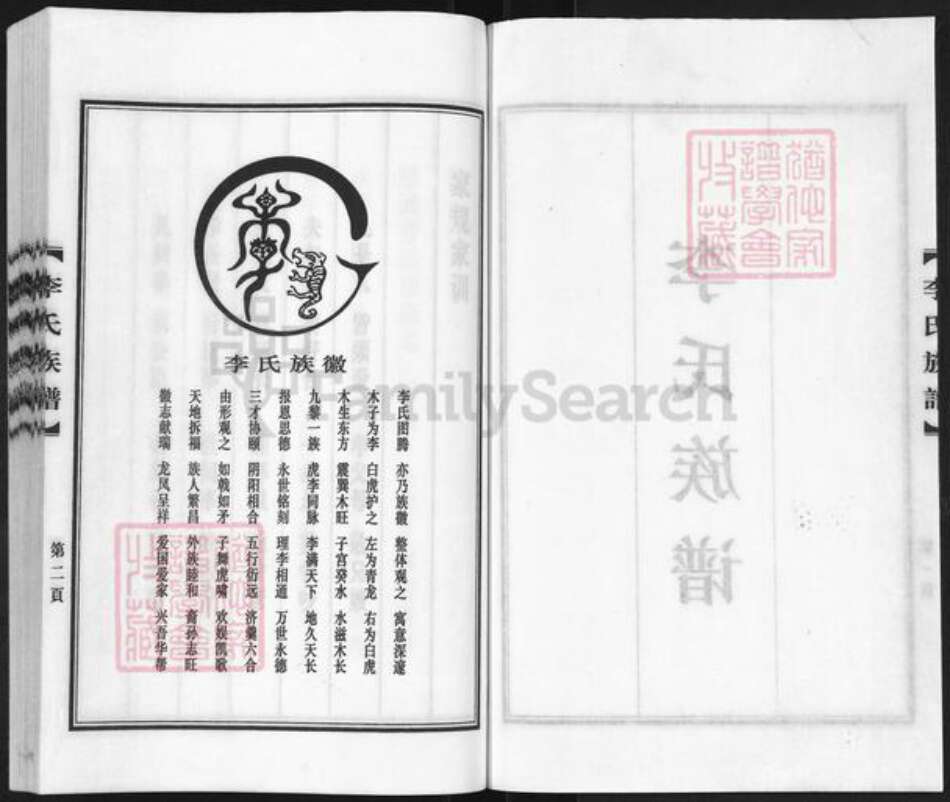 李氏族徽
李氏图腾 亦乃族徽 整体观之 寓意深邃
木子为李 白虎护之 左为青龙 右为白虎
木生东方 震巽木旺 子宫癸水 水滋木长
九黎一族 虎李同脉 李满天下 地久天长
报恩恩德 永世铭刻 理李相通 万世永德
三才协颐 阴阳相合 五行衍远 济羹六合
由形观之 如戟如矛 子舞虎啸 欢娱凯歌
天地拆福 族人繁昌 外族睦和 裔孙志旺
徽志献瑞 龙凤呈祥 爱国爱家 兴吾华帮
【李氏族谱】
第二頁
【李氏族譜】
李氏族谱
猶他家譜學會收藏
猶他家譜學會收藏
FamilySearch